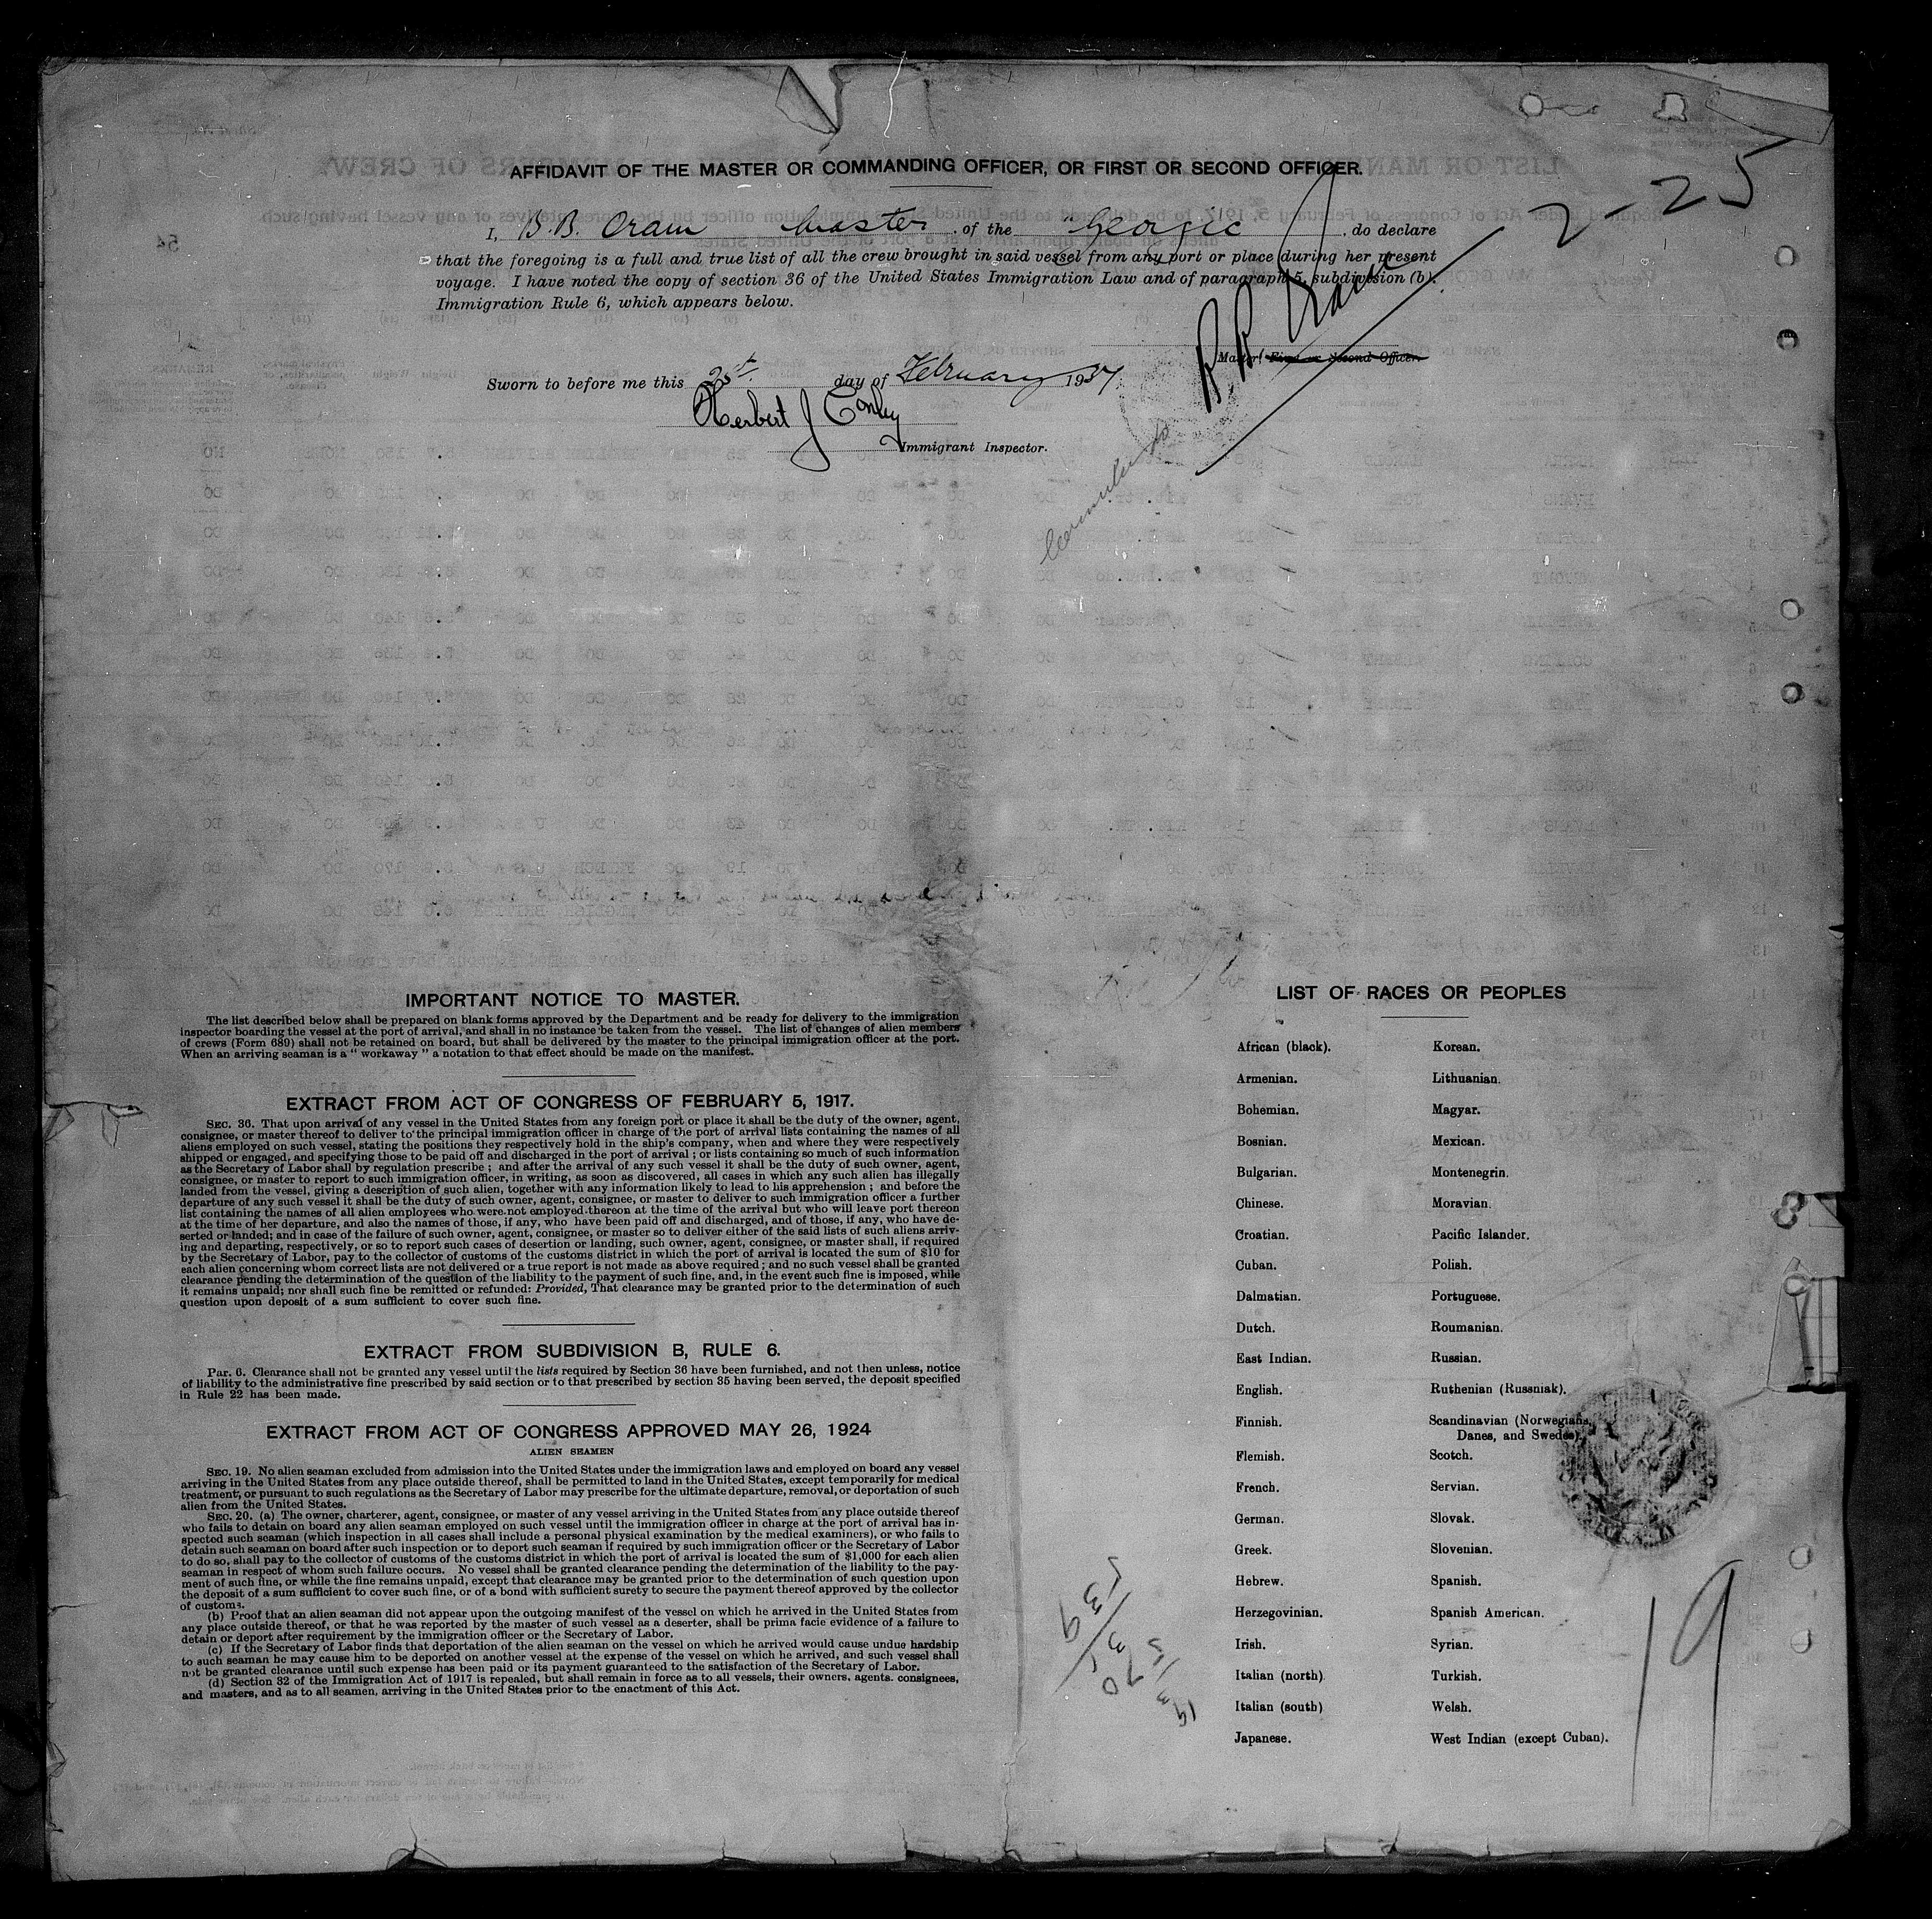 AFFIDAVIT OF THE MASTER OR COMMANDING OFFICER, OR FIRST OR SECOND OFFICER.
2-25
I, B.B. Oram Master of the "Georgic", do declare
that the foregoing is a full and true list of all the crew brought in said vessel from any port or place during her present
voyage. I have noted the copy of section 36 of the United States Immigration Law and of paragraph 5, subdivision (b).
Immigration Rule 6, which appears below.
B. B. Oram
Master, First or Second Officer.
Sworn to before me this 25th day of February 1937
Herbert J Conley
Immigrant Inspector.
IMPORTANT NOTICE TO MASTER.
The list described below shall be prepared on blank forms approved by the Department and be ready for delivery to the immigration
inspector boarding the vessel at the port of arrival, and shall in no instance be taken from the vessel. The list of changes of alien members
of crews (Form 689) shall not be retained on board, but shall be delivered by the master to the principal immigration officer at the port.
When an arriving seaman is a " workaway " a notation to that effect should be made on the manifest.
EXTRACT FROM ACT OF CONGRESS OF FEBRUARY 5, 1917.
SEC. 36. That upon arrival of any vessel in the United States from any foreign port or place it shall be the duty of the owner, agent,
consignee, or master thereof to deliver to the principal immigration officer in charge of the port of arrival lists containing the names of all
aliens employed on such vessel, stating the positions they respectively hold in the ship's company, when and where they were respectively
shipped or engaged, and specifying those to be paid off and discharged in the port of arrival ; or lists containing so much of such information
as the Secretary of Labor shall by regulation prescribe ; and after the arrival of any such vessel it shall be the duty of such owner, agent,
consignee, or master to report to such immigration officer, in writing, as soon as discovered, all cases in which any such alien has illegally
landed from the vessel, giving a description of such alien, together with any information likely to lead to his apprehension ; and before the
departure of any such vessel it shall be the duty of such owner, agent, consignee, or master to deliver to such immigration officer a further
list containing the names of all alien employees who were not employed thereon at the time of the arrival but who will leave port thereon
at the time of her departure, and also the names of those, if any, who have been paid off and discharged, and of those, if any, who have de-
serted or landed; and in case of the failure of such owner, agent, consignee, or master so to deliver either of the said lists of such aliens arriv-
ing and departing, respectively, or so to report such cases of desertion or landing, such owner, agent, consignee, or master shall, if required
by the Secretary of Labor, pay to the collector of customs of the customs district in which the port of arrival is located the sum of $10 for
each alien concerning whom correct lists are not delivered or a true report is not made as above required ; and no such vessel shall be granted
clearance pending the determination of the question of the liability to the payment of such fine, and, in the event such fine is imposed, while
it remains unpaid; nor shall such fine be remitted or refunded: Provided, That clearance may be granted prior to the determination of such
question upon deposit of a sum sufficient to cover such fine.
EXTRACT FROM SUBDIVISION B, RULE 6.
Par. 6. Clearance shall not be granted any vessel until the lists required by Section 36 have been furnished, and not then unless, notice
of liability to the administrative fine prescribed by said section or to that prescribed by section 35 having been served, the deposit specified
in Rule 22 has been made.
EXTRACT FROM ACT OF CONGRESS APPROVED MAY 26, 1924
ALIEN SEAMEN
SEC. 19. No alien seaman excluded from admission into the United States under the immigration laws and employed on board any vessel
arriving in the United States from any place outside thereof, shall be permitted to land in the United States, except temporarily for medical
treatment, or pursuant to such regulations as the Secretary of Labor may prescribe for the ultimate departure, removal, or deportation of such
alien from the United States.
SEC. 20. (a) The owner, charterer, agent, consignee, or master of any vessel arriving in the United States from any place outside thereof
who fails to detain on board any alien seaman employed on such vessel until the immigration officer in charge at the port of arrival has in-
spected such seaman (which inspection in all cases shall include a personal physical examination by the medical examiners), or who fails to
detain such seaman on board after such inspection or to deport such seaman if required by such immigration officer or the Secretary of Labor
to do so, shall pay to the collector of customs of the customs district in which the port of arrival is located the sum of $1,000 for each alien
seaman in respect of whom such failure occurs. No vessel shall be granted clearance pending the determination of the liability to the pay-
ment of such fine, or while the fine remains unpaid, except that clearance may be granted prior to the determination of such question upon
the deposit of a sum sufficient to cover such fine, or of a bond with sufficient surety to secure the payment thereof approved by the collector
of customs.
(b) Proof that an alien seaman did not appear upon the outgoing manifest of the vessel on which he arrived in the United States from
any place outside thereof, or that he was reported by the master of such vessel as a deserter, shall be prima facie evidence of a failure to
detain or deport after requirement by the immigration officer or the Secretary of Labor.
(c) If the Secretary of Labor finds that deportation of the alien seaman on the vessel on which he arrived would cause undue hardship
to such seaman he may cause him to be deported on another vessel at the expense of the vessel on which he arrived, and such vessel shall
not be granted clearance until such expense has been paid or its payment guaranteed to the satisfaction of the Secretary of Labor.
(d) Section 32 of the Immigration Act of 1917 is repealed, but shall remain in force as to all vessels, their owners, agents, consignees,
and masters, and as to all seamen, arriving in the United States prior to the enactment of this Act.
LIST OF RACES OR PEOPLES
African (black). Korean.
Armenian. Lithuanian.
Bohemian. Magyar.
Bosnian. Mexican.
Bulgarian. Montenegrin.
Chinese. Moravian.
Croatian. Pacific Islander.
Cuban. Polish.
Dalmatian. Portuguese.
Dutch. Roumanian.
East Indian. Russian.
English. Ruthenian (Russniak).
Finnish. Scandinavian (Norwegians,
Danes, and Swedes).
Flemish. Scotch.
French. Servian.
German. Slovak.
Greek. Slovenian.
Hebrew. Spanish.
Herzegovinian. Spanish American.
Irish. Syrian.
Italian (north) Turkish.
Italian (south) Welsh.
Japanese. West Indian (except Cuban).
19